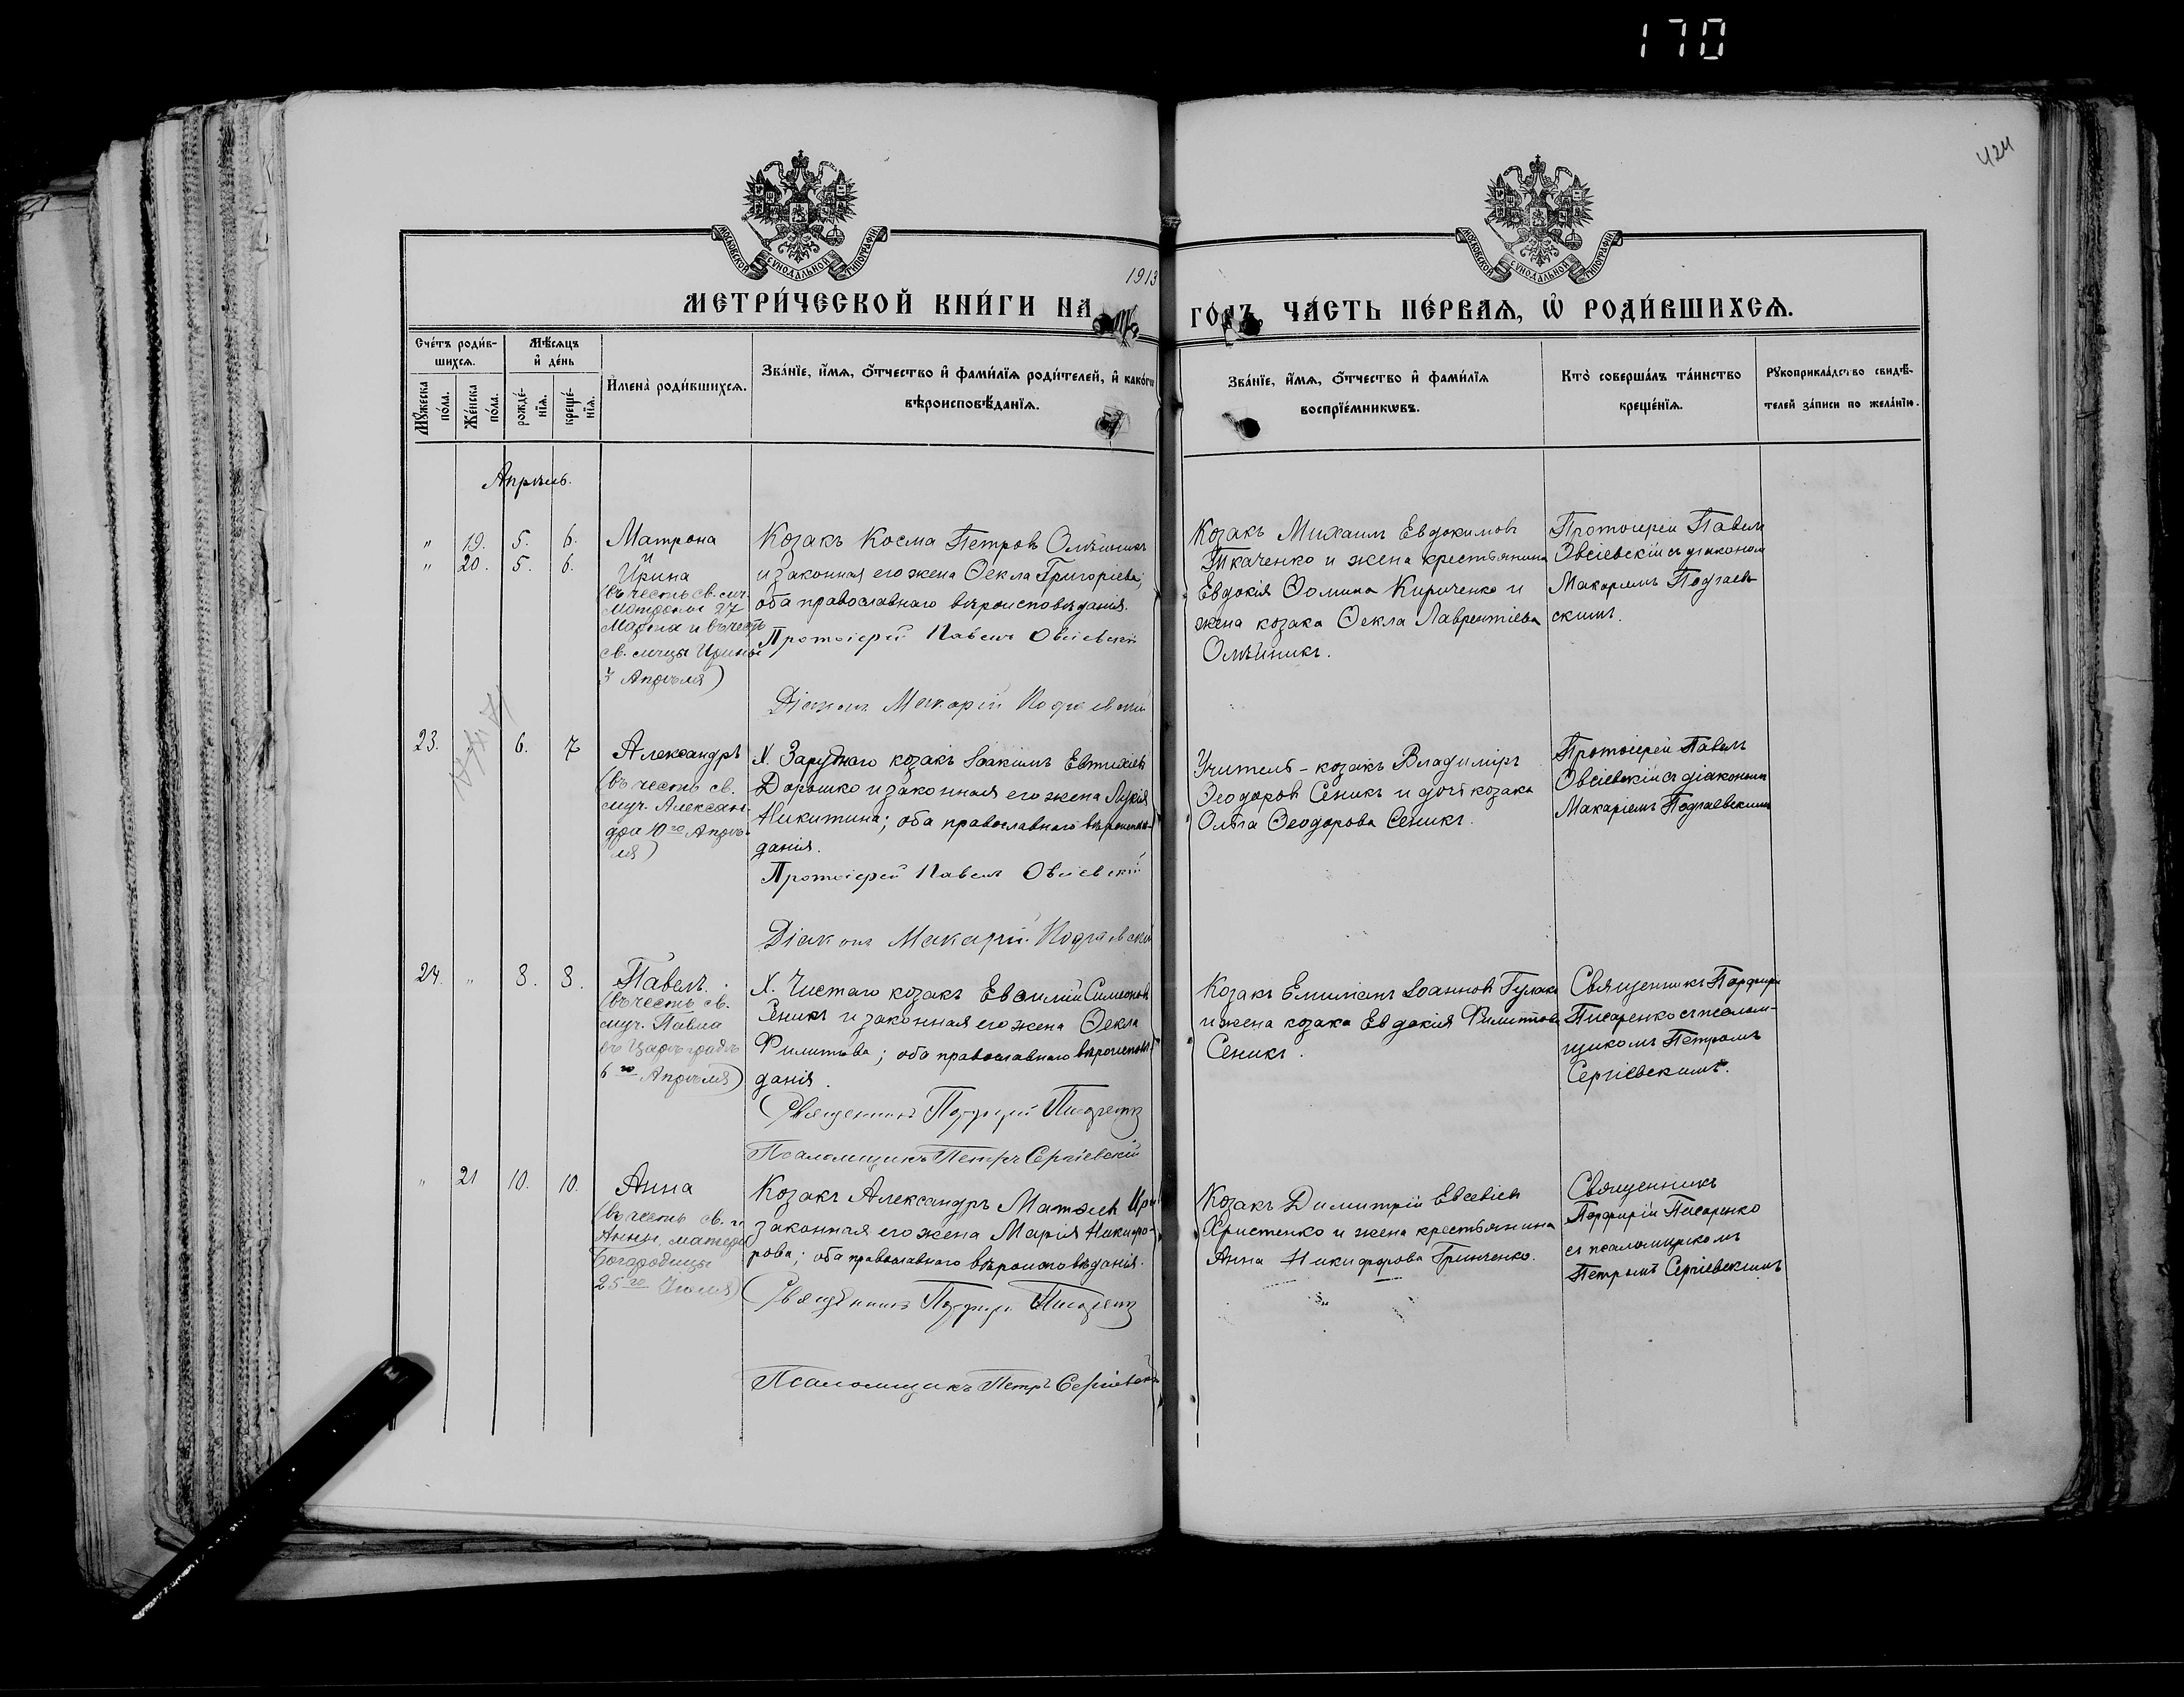 170
424
МОСКОВСКОЙ СѴНОДАЛЬНОЙ ТИПОГРАФІИ
МОСКОВСКОЙ СѴНОДАЛЬНОЙ ТИПОГРАФІИ
1913
МЕТРИ́ЧЕСКОЙ КНИ́ГИ НА
ГО́ДЪ, ЧА́СТЬ ПЕ́РВАѦ, Ѡ҆ РОДИ́ВШИХСѦ.
Сче́тъ роди́в-
шихсѧ.
Мꙋ́жеска
по́ла.
Же́нска
по́ла.
Мѣ́сѧцъ
и҆ де́нь
рожде́-
нїѧ.
креще́-
нїѧ.
И҆мена̀ роди́вшихсѧ.
Зва́нїе, и҆́мѧ, ѻ҆́тчество и҆ фами́лїѧ роди́телей, и҆ како́гѡ
вѣроисповѣ́данїѧ.
Зва́нїе, и҆́мѧ, ѻ҆́тчество и҆ фами́лїѧ
воспрїе́мникѡвъ.
Кто̀ соверша́лъ та́инство
креще́нїѧ.
Рꙋкоприкла́дство свидѣ́-
телей за́писи по жела́нїю.
Апрѣль.
" 19. 5. 6.
" 20. 5. 6.
Матрона
и
Ирина
(въ честь св. муч.
Матроны 27
Марта и въ честь
св. м-цы Ирины
Апрѣля)
Козакъ Косма Петровъ Олѣйникъ
и законная его жена Ѳекла Григоріева;
оба православнаго вѣроисповѣданія.
Протоіерей Павелъ Овсіевскій
Діаконъ Макарій Подгаевскій
Козакъ Михаилъ Евдокимовъ
Ткаченко и жена крестьянина
Евдокія Ѳомина Кириченко и
жена козака Ѳекла Лаврентіева
Олѣйникъ.
Протоіерей Павелъ
Овсіевскій съ діакономъ
Макаріемъ Подгаев-
скимъ.
23. 6. 7
Александръ
(въ честь св.
муч. Алексан-
дра 10го Апрѣ-
ля)
Х. Заруднаго козакъ Іоакимъ Евтихіевъ
Дорошко и законная его жена Лукія
Никитина; оба православнаго вѣроисповѣ-
данія.
Протоіерей Павелъ Овсіевскій
Діаконъ Макарій Подгаевскій
Учитель - козакъ Владиміръ
Ѳеодоровъ Сеникъ и дочь козака
Ольга Ѳеодорова Сеникъ.
Протоіерей Павелъ
Овсіевскій съ діакономъ
Макаріемъ Подгаевскимъ
24. " 8. 8.
Павелъ.
(въ честь св.
муч. Павла
въ Царѣградѣ
6го Апрѣля)
Х. Чистаго козакъ Евфимій Симеоновъ
Сеникъ и законная его жена Ѳекла
Филиппова; оба православнаго вѣроисповѣ-
данія.
Священникъ Порфирій Писаренко
Псаломщикъ Петръ Сергіевскій
Козакъ Емиліанъ Іоанновъ Гулакъ
и жена козака Евдокія Филиппова
Сеникъ.
Священникъ Порфирій
Писаренко съ псалом-
щикомъ Петромъ
Сергіевскимъ.
" 21 10. 10.
Анна
(въ честь св.
Анны, матери
Богородицы
25го Іюля)
Козакъ Александръ Матѳіевъ
законная его жена Марія Никифо-
рова; оба православнаго вѣроисповѣданія.
Священникъ Порфирій Писаренко
Псаломщикъ Петръ Сергіевскій
Козакъ Димитрій Евсевіевъ
Христенко и жена крестьянина
Анна Никифорова Гринченко.
Священникъ
Порфирій Писаренко
съ псаломщикомъ
Петромъ Сергіевскимъ